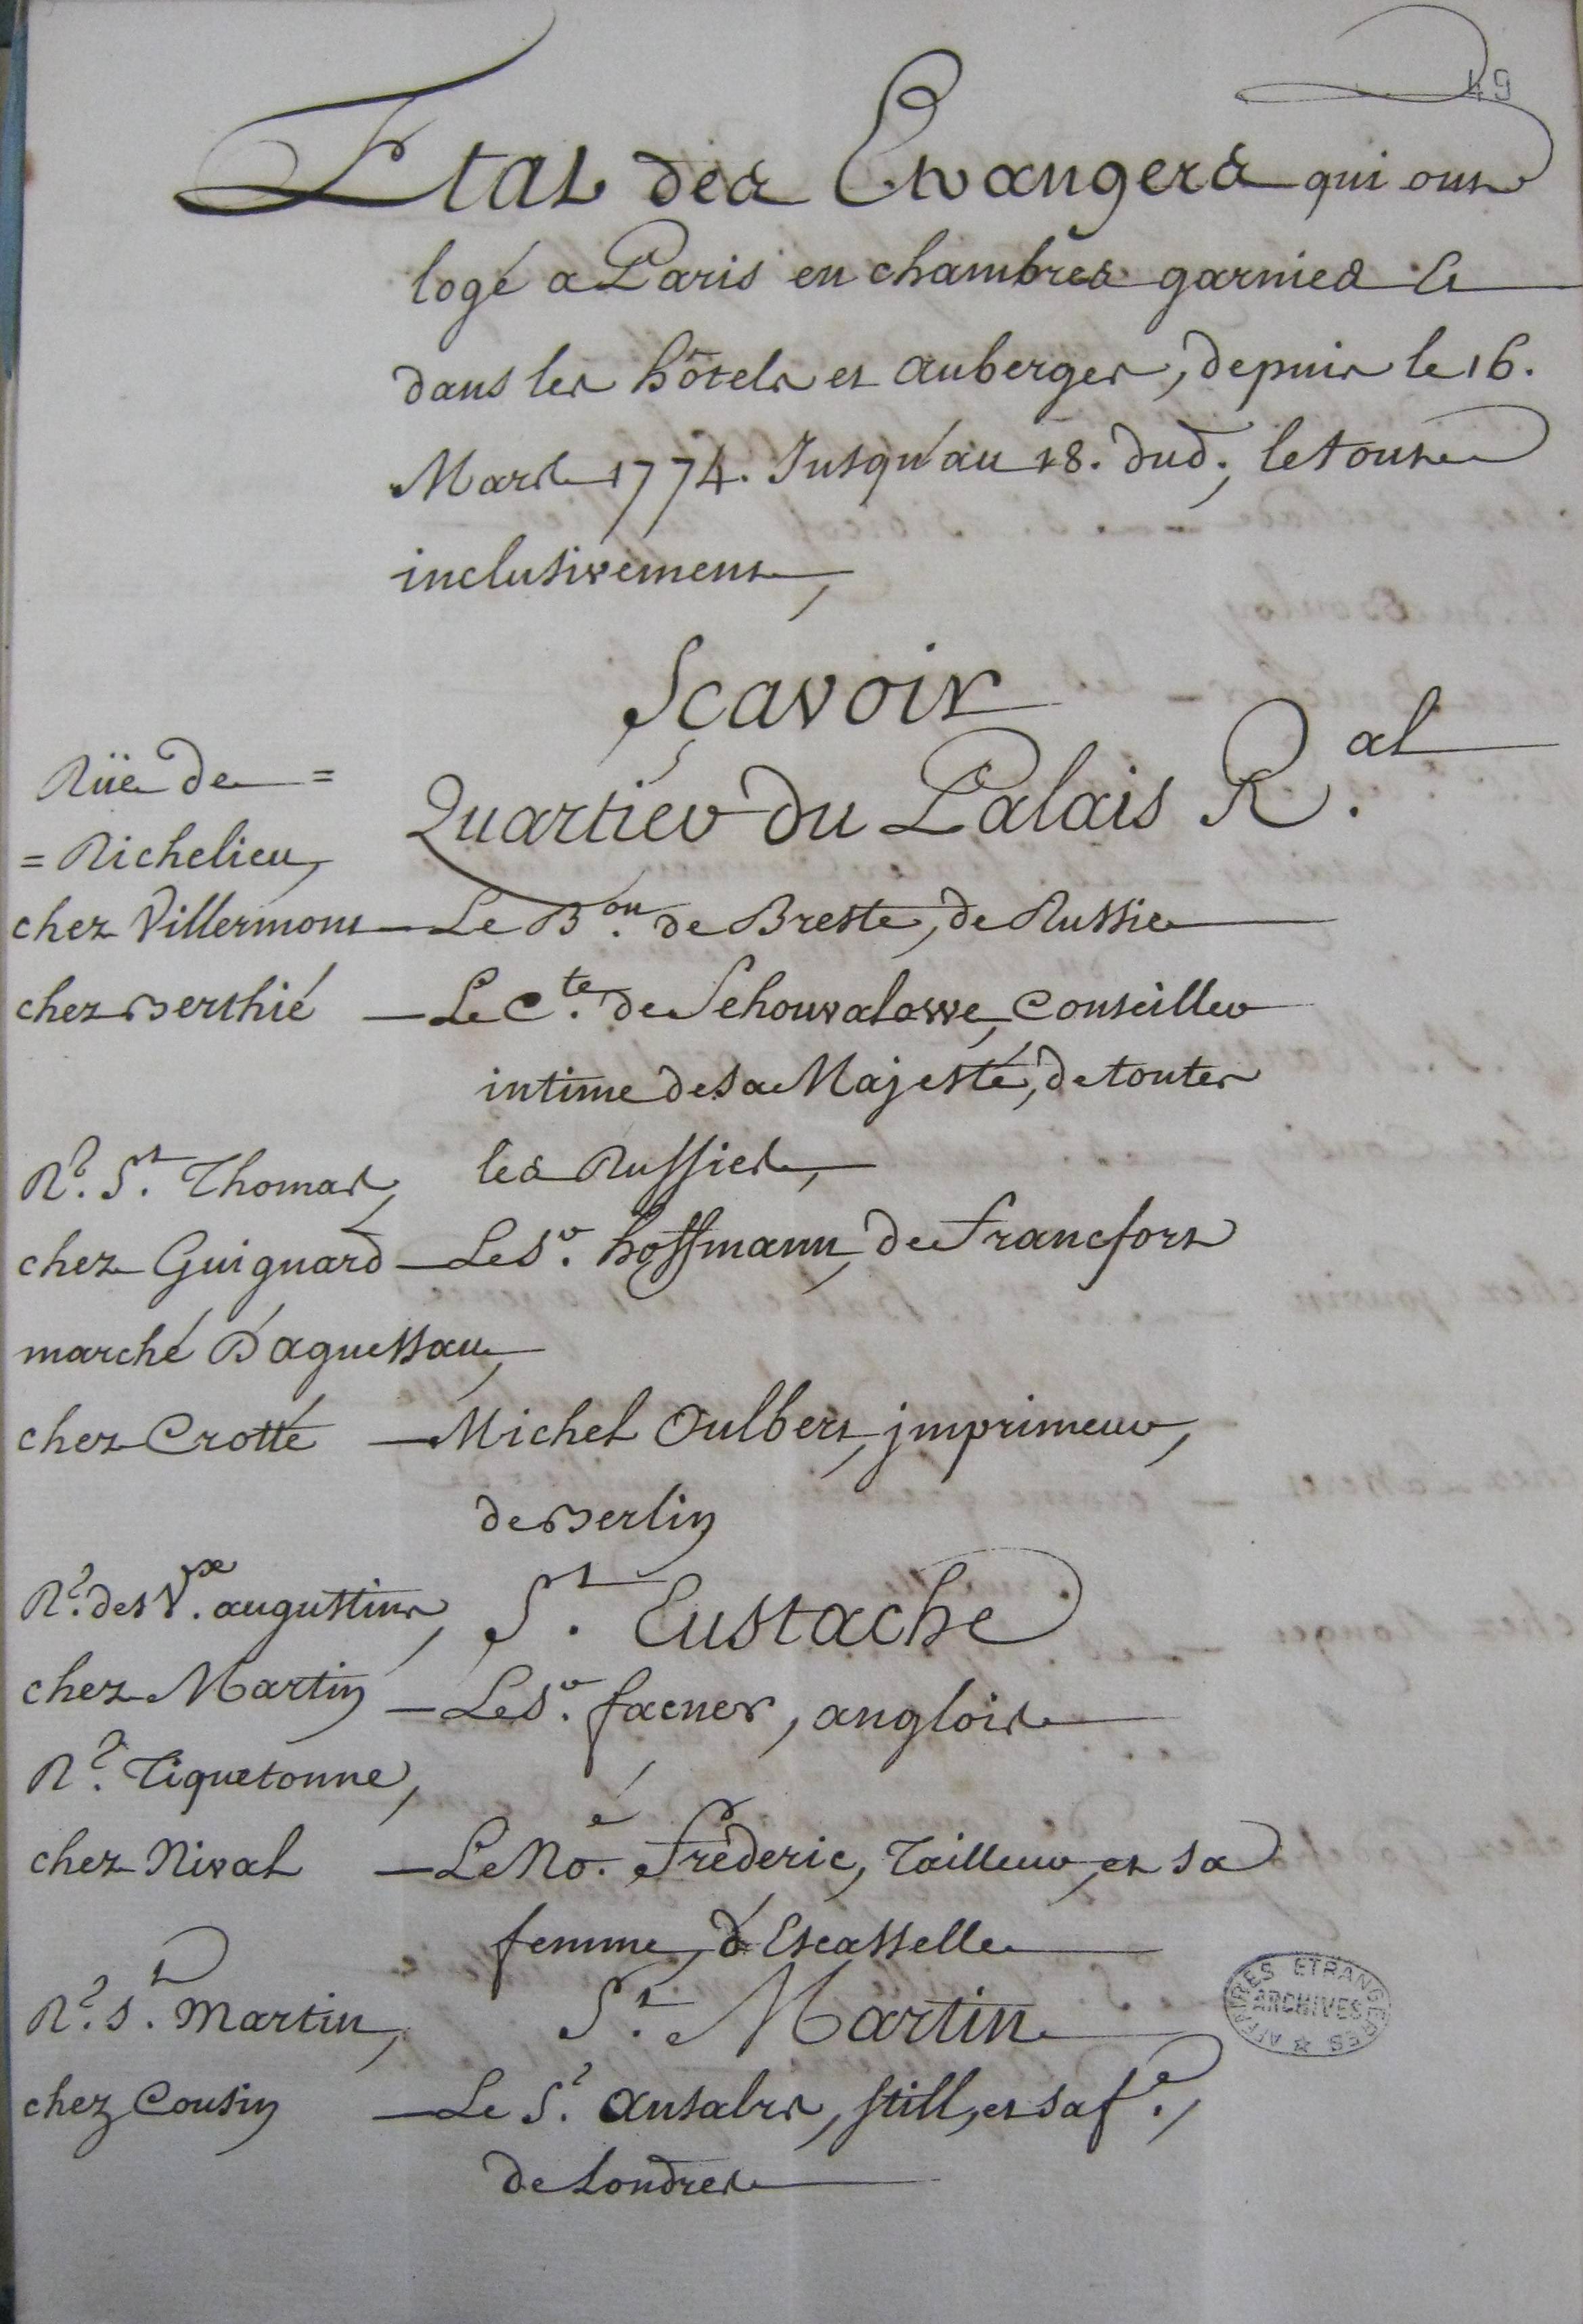 49
Etat des Etrangers qui ont
logé a Paris en chambres garnies et
dans les hôtels et auberges, depuis le 16.
Mars 1774. Jusqu'au 18. dud., le tout
inclusivement,
Sçavoir
Quartier du Palais R.al
Rüe de =
= Richelieu,
chez Villermont — Le B.on de Breste, de Russie
chez Berthié — Le C.te de Schouvalowe, Conseiller
intime de sa Majesté, de toutes
les Russies,
R.e S.t Thomas,
chez Guignard — Le S.r hoffmann, de francfort
marché D'aguessau,
chez Crotté — Michel Oulbert, jmprimeur,
de Berlin
R.e des V.x augustins, S.t Eustache
chez Martin — Le S.r facner, anglois
R.e Tiquetonne,
chez Nival — Le No.é Fréderic, Tailleur, et sa
femme, d'Escasselle
R.e S.t Martin, S.t Martin
chez Cousin — Le S.r ansalrs, still, et sa f.e,
de Londres
AFFAIRES ETRANGERES
ARCHIVES